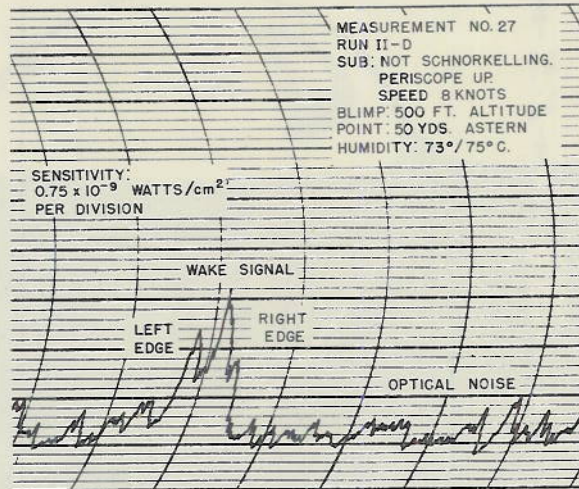 MEASUREMENT NO. 27
RUN II-D
SUB: NOT SCHNORKELLING.
PERISCOPE UP.
SPEED 8 KNOTS
BLIMP: 500 FT. ALTITUDE
POINT: 50 YDS. ASTERN
HUMIDITY: 73°/75°C.
SENSITIVITY:
0.75 x 10⁻⁹ WATTS/cm²
PER DIVISION
WAKE SIGNAL
LEFT
EDGE
RIGHT
EDGE
OPTICAL NOISE